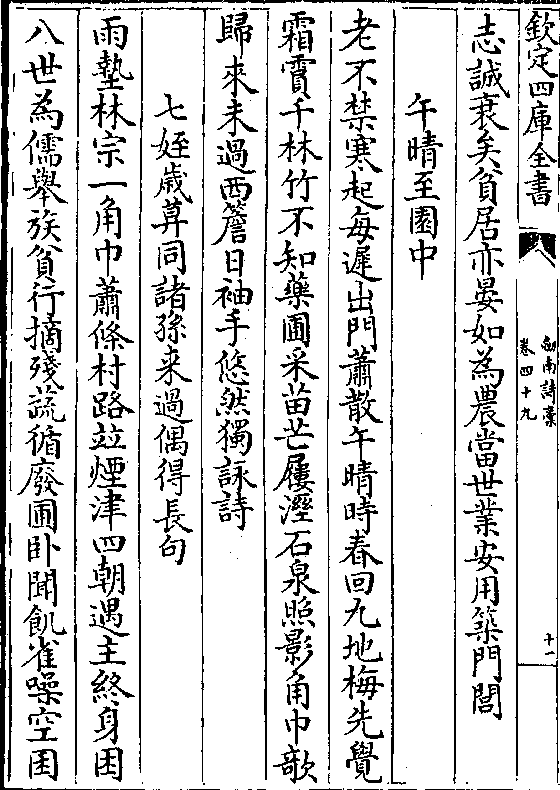 欽定四庫全書
劍南詩藁
卷四十九
十一
志誠衰矣貧居亦晏如為農當世業安用築門閭
午晴至園中
老不禁寒起每遲出門蕭散午晴時春回九地梅先覺
霜霣千林竹不知藥圃采苗芒屨溼石泉照影角巾欹
歸來未過西簷日袖手悠然獨詠詩
七姪歲暮同諸孫来過偶得長句
雨墊林宗一角巾蕭條村路並煙津四朝遇主終身困
八世為儒舉族貧行摘殘蔬循廢圃卧聞飢雀噪空囷